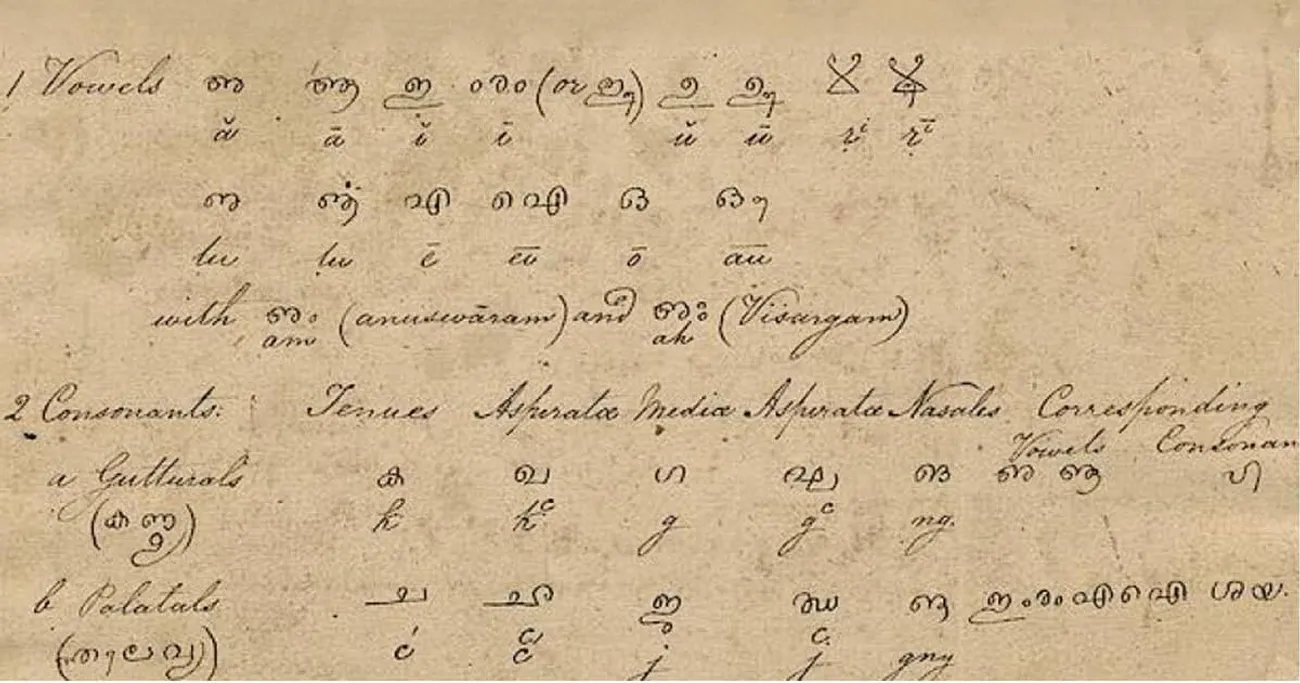 1 Vowels അ ആ ഇ ൟ (or ഈ) ഉ ഊ ഋ ൠ
ă ā ĭ ī ŭ ū
ഏ ഐ ഓ ഔ
lu lu ē eū ō aū
with അം (anuswāram) and അഃ (Visargam)
am ah
2 Consonants: Tenues Aspiratæ Mediæ Aspiratæ Nasales Corresponding
Vowels Consonan
a Gutturals ക ഖ ഗ ഘ ങ അ ആ ഹ
k k̔ g g̔ ng.
b Palatals ച ഛ ജ ഝ ഞ ഇ ൟ എ ഐ ശ യ.
(താലവ്യ) ć ć̔ j j̔ gny